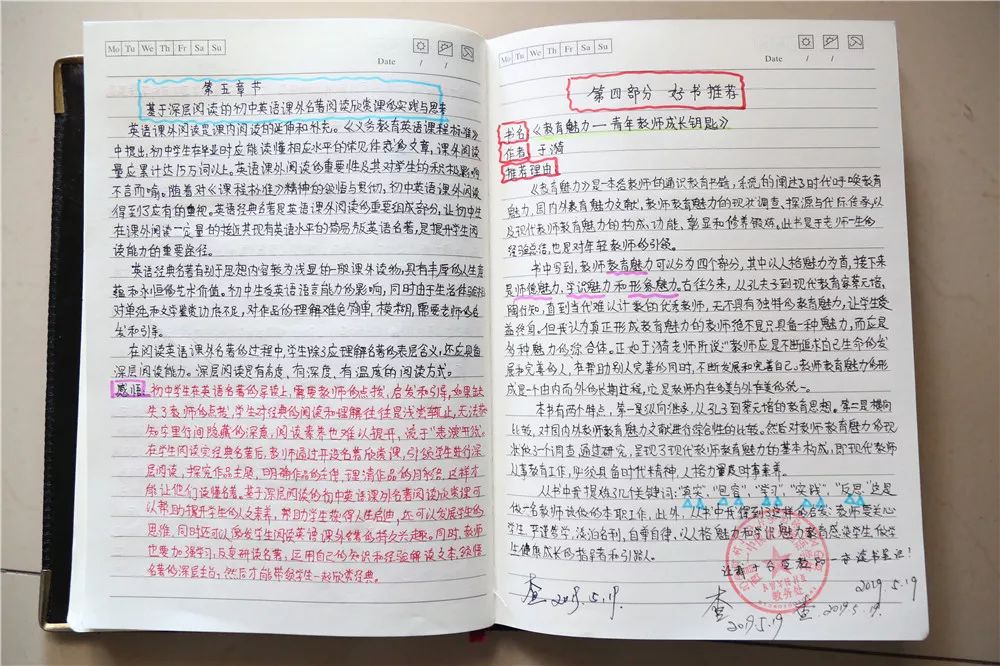 Mo Tu We Th Fr Sa Su
Date / /
第五章节
基于深层阅读的初中英语课外名著阅读欣赏课的实践与思考
英语课外阅读是课内阅读的延伸和补充。《义务教育英语课程标准》
中提出,初中学生在毕业时应能读懂相应水平的常见体裁的文章,课外阅读
量应累计达15万词以上。英语课外阅读的重要性及其对学生的积极影响
不言而喻。随着对《课程标准》精神的领悟与贯彻,初中英语课外阅读
得到了应有的重视。英语经典名著是英语课外阅读的重要组成部分,让初中生
在课外阅读一定量的接近其现有英语水平的简易版英语名著,是提升学生阅
读能力的重要途径。
英语经典名著有别于思想内容较为浅显的一般课外读物,具有丰厚的人生意
蕴和永恒的艺术价值。初中生受英语语言能力的影响,同时由于生活体验和
对单元和文学鉴赏功底不足,对作品的理解难免简单,模糊,需要老师的启
发和引导。
在阅读英语课外名著的过程中,学生除了应理解名著的表层含义,还应具备
深层阅读能力。深层阅读是有高度,有深度,有温度的阅读方式。
感悟:初中学生在英语名著的导读上,需要教师的点拨,启发和引导,如果缺
失了教师的点拨,学生对经典的阅读和理解往往是浅尝辄止,无法获
知字里行间隐藏的深度,阅读素养也难以提升,流于“表演开放”。
在学生阅读完经典名著后,教师通过开设名著欣赏课,引领学生进行深
层阅读,探究作品主题,明确作品的主旨,理清作品的月积,这样才
能让他们读懂名著。基于深层阅读的初中英语课外名著阅读欣赏课可
以帮助提升学生的人文素养,帮助学生获得人生启迪,还可以发展学生的
思维,同时还可以激发学生阅读英语课外名著的持久兴趣。同时,教师
也要加强学习,反复研读名著,运用自己的知识和经验解读文本,领悟
名著的深层主旨,然后才能带领学生一起欣赏经典。
Mo Tu We Th Fr Sa Su
Date / /
第四部分 好书推荐
书名《教育魅力——青年教师成长钥匙》
作者 于漪
推荐理由
《教育魅力》是一本给教师的通识教育书籍,系统的阐述了时代呼唤教育
魅力,国内外教育魅力文献,教师教育魅力的现状调查、探源与代际传承,以
及现代教师教育魅力的构成、功能、彰显和修养锻炼。此书是于老师一生的
经验总结,也是对年轻教师的引领。
书中写到,教师教育魅力可以分为四个部分,其中以人格魅力为首,接下来
是师德魅力,学识魅力和形象魅力。古往今来,从孔夫子到现代教育家蔡元培,
陶行知,直到当代难以计数的优秀教师,无不具有独特的教育魅力,让学生受
益终身。但我认为真正形成教育魅力的教师绝不是只具备一种魅力,而应是
多种魅力的综合体。正如于漪老师所说:“教师应是不断追求自己生命的发
展和完善的人,在帮助别人完善的同时,不断发展和完善自己。教师教育魅力的形
成是一个由内而外的长期过程,它是教师内在的美与外在美的统一。
本书有两个特点,第一是纵向传承,从孔子到蔡元培的教育思想。第二是横向
比较,对国内外教师教育魅力文献进行综合性的比较。然后对教师教育魅力的现
状做了一个调查,通过研究,呈现了现代教师教育魅力的基本构成,即现代教师
从事教育工作,必须具备时代精神,人格力量及时事素养。
从书中我提炼了几个关键词:“真实”,“包容”,“学习”,“实践”,“反思”,这是
做一名教师该做的本职工作,此外,从书中我得到了这样的启发:教师要关心
学生,严谨教学,淡泊名利,自尊自律,以人格魅力和学识魅力来感染学生,做学
生健康成长的指导者和引路人。
查 2019.5.19.
教务处
查 2019.5.19
查 2019.5.19.
2019.5.19